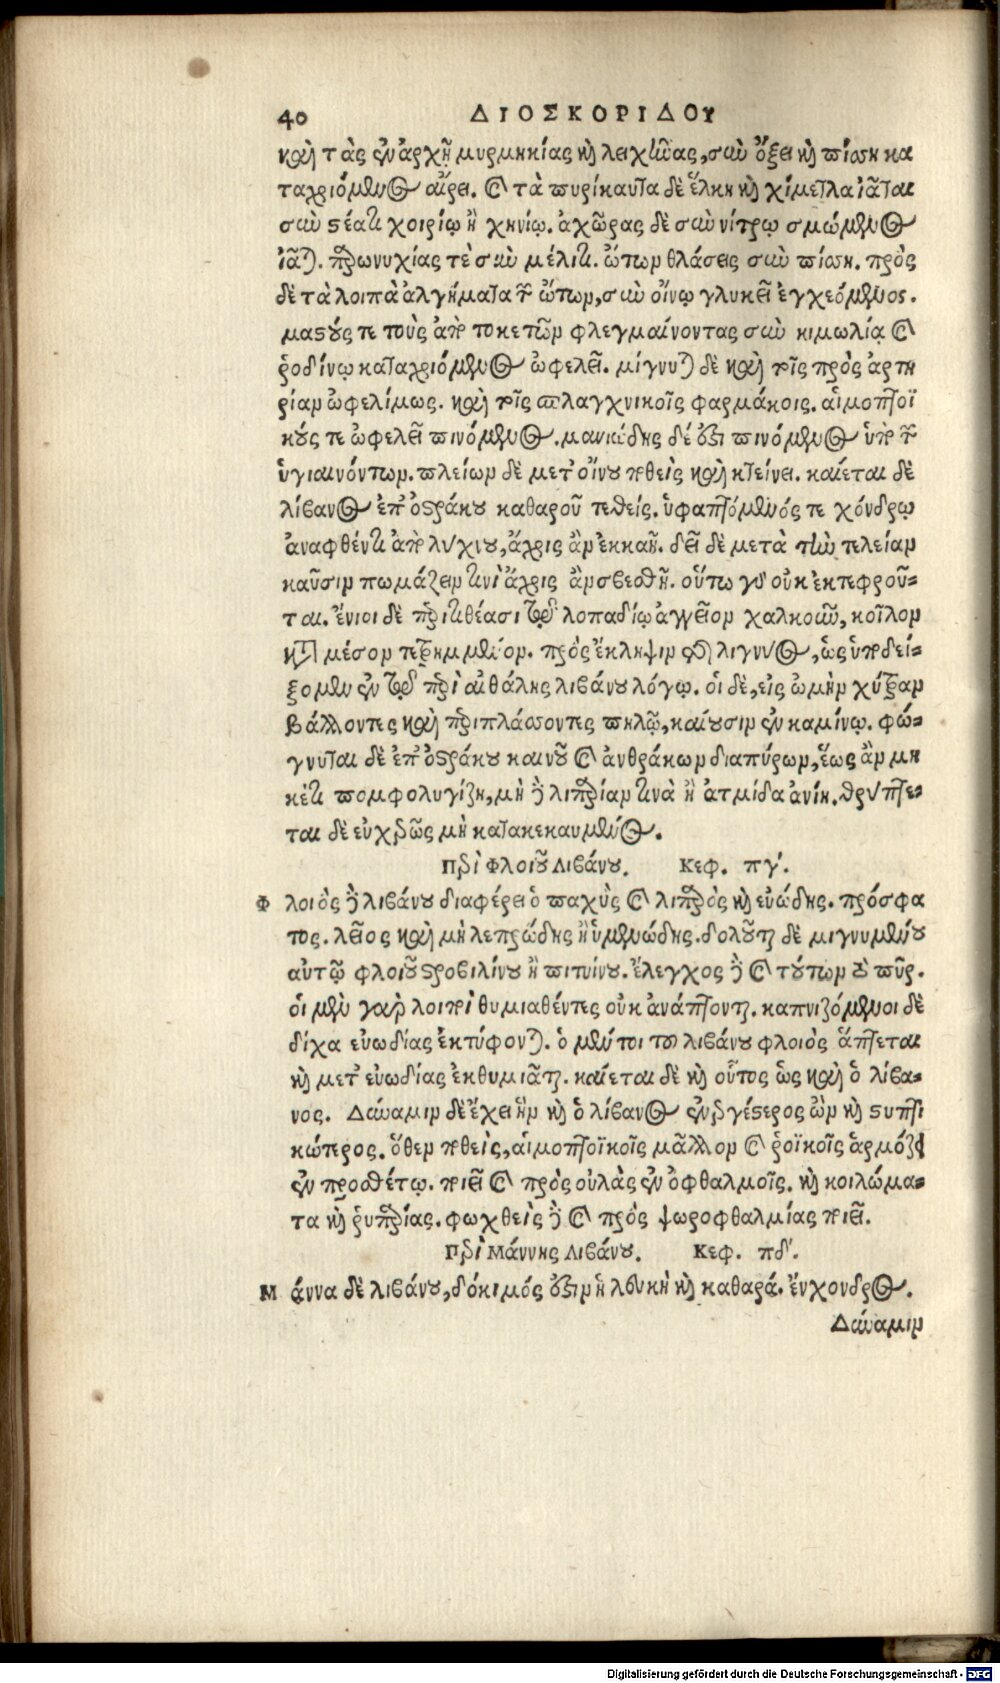 40 ΔΙΟΣΚΟΡΙΔΟΥ
καὶ τὰς ἐν ἀρχῇ μυρμηκίας καὶ λειχῆνας, σὺν ὄξει καὶ πίσσῃ κα
ταχριόμενος αἴρει. καὶ τὰ πυρίκαυτα δὲ ἕλκη καὶ χίμετλα ἰᾶται
σὺν στέατι χοιρίῳ ἢ χηνίῳ. ἀχῶρας δὲ σὺν νίτρῳ σμώμενος
ἰᾶται. παρωνυχίας τὲ σὺν μέλιτι. ὤτων θλάσεις σὺν πίσσῃ. πρὸς
δὲ τὰ λοιπὰ ἀλγήματα τῶν ὤτων, σὺν οἴνῳ γλυκεῖ ἐγχεόμενος.
μαστούς τε τοὺς ἀπὸ τοκετῶν φλεγμαίνοντας σὺν κιμωλίᾳ καὶ
ῥοδίνῳ καταχριόμενος ὠφελεῖ. μίγνυται δὲ καὶ τοῖς πρὸς ἀρτη
ρίαν ὠφελίμως. καὶ τοῖς σπλαγχνικοῖς φαρμάκοις. αἱμοπτοϊ
κούς τε ὠφελεῖ πινόμενος. μανιώδης δέ ἐστι πινόμενος ὑπὸ τῶν
ὑγιαινόντων. πλείων δὲ μετ' οἴνου ποθεὶς καὶ κτείνει. καίεται δὲ
λίβανος ἐπ' ὀστράκου καθαροῦ τεθείς. ὑφαπτόμενός τε χόνδρῳ
ἀναφθέντι ἀπὸ λύχνου, ἄχρις ἂν ἐκκαῇ. δεῖ δὲ μετὰ τὴν τελείαν
καῦσιν πωμάζειν τινὶ ἄχρις ἂν σβεσθῇ. οὕτω γὰρ οὐκ ἐκτεφροῦ-
ται. ἔνιοι δὲ περιτιθέασι τῷ λοπαδίῳ ἀγγεῖον χαλκοῦν, κοῖλον
κατὰ μέσον τετρημμένον. πρὸς ἔκληψιν τῆς λιγνύος, ὡς ὑποδεί-
ξομεν ἐν τῷ περὶ αἰθάλης λιβάνου λόγῳ. οἱ δὲ, εἰς ὠμὴν χύτραν
βάλλοντες καὶ περιπλάσσοντες πηλῷ, καίουσιν ἐν καμίνῳ. φώ-
γνυται δὲ ἐπ' ὀστράκου καινοῦ καὶ ἀνθράκων διαπύρων, ἕως ἂν μη
κέτι πομφολυγίζῃ, μὴ δὲ λιπαρίαν τινὰ ἢ ἀτμίδα ἀνίῃ. θρύπτε-
ται δὲ εὐχερῶς μὴ κατακεκαυμένος.
Περὶ Φλοιοῦ Λιβάνου. Κεφ. πγʹ.
Φλοιὸς δὲ λιβάνου διαφέρει ὁ παχὺς καὶ λιπαρὸς καὶ εὐώδης. πρόσφα
τος. λεῖος καὶ μὴ λεπρώδης ἢ ὑμενώδης. δολοῦται δὲ μιγνυμένου
αὐτῷ φλοιοῦ στροβιλίνου ἢ πιτυίνου. ἔλεγχος δὲ καὶ τούτων τὸ πῦρ.
οἱ μὲν γὰρ λοιποὶ θυμιαθέντες οὐκ ἀνάπτονται. καπνιζόμενοι δὲ
δίχα εὐωδίας ἐκτύφονται. ὁ μέντοι τοῦ λιβάνου φλοιὸς ἅπτεται
καὶ μετ' εὐωδίας ἐκθυμιᾶται. καίεται δὲ καὶ οὗτος ὡς καὶ ὁ λίβα-
νος. Δύναμιν δὲ ἔχει ἣν καὶ ὁ λίβανος ἐνεργέστερος ὢν καὶ στυπτι
κώτερος. ὅθεν ποθεὶς, αἱμοπτοϊκοῖς μᾶλλον καὶ ῥοϊκοῖς ἁρμόζει
ἐν προσθέτῳ. ποιεῖ καὶ πρὸς οὐλὰς ἐν ὀφθαλμοῖς. καὶ κοιλώμα-
τα καὶ ῥυπαρίας. φωχθεὶς δὲ καὶ πρὸς ψωροφθαλμίας ποιεῖ.
Περὶ Μάννης Λιβάνου. Κεφ. πδʹ.
Μάννα δὲ λιβάνου, δόκιμός ἐστιν ἡ λευκὴ καὶ καθαρά. ἔνχονδρος.
Δύναμιν
Digitalisierung gefördert durch die Deutsche Forschungsgemeinschaft - DFG